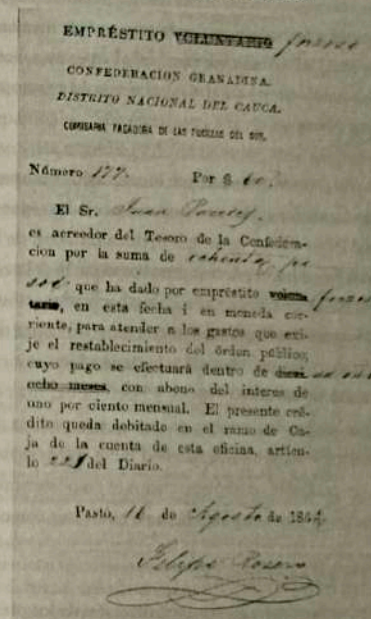 EMPRÉSTITO VOLUNTARIO forzoso
CONFEDERACION GRANADINA.
DISTRITO NACIONAL DEL CAUCA.
COMISARIA PAGADORA DE LAS FUERZAS DEL SUR.
Número 177. Por $
El Sr. Juan
es acreedor del Tesoro de la Confedera-
cion por la suma de ochenta pe
sos que ha dado por empréstito volun forzo
tario, en esta fecha i en moneda cor-
riente, para atender a los gastos que exi-
je el restablecimiento del órden público;
cuyo pago se efectuará dentro de diezi un año
ocho meses, con abono del interes de
uno por ciento mensual. El presente cré-
dito queda debitado en el ramo de Ca-
ja de la cuenta de esta oficina, artícu-
lo del Diario.
Pasto, 16 de Agosto de
Felipe Rosero